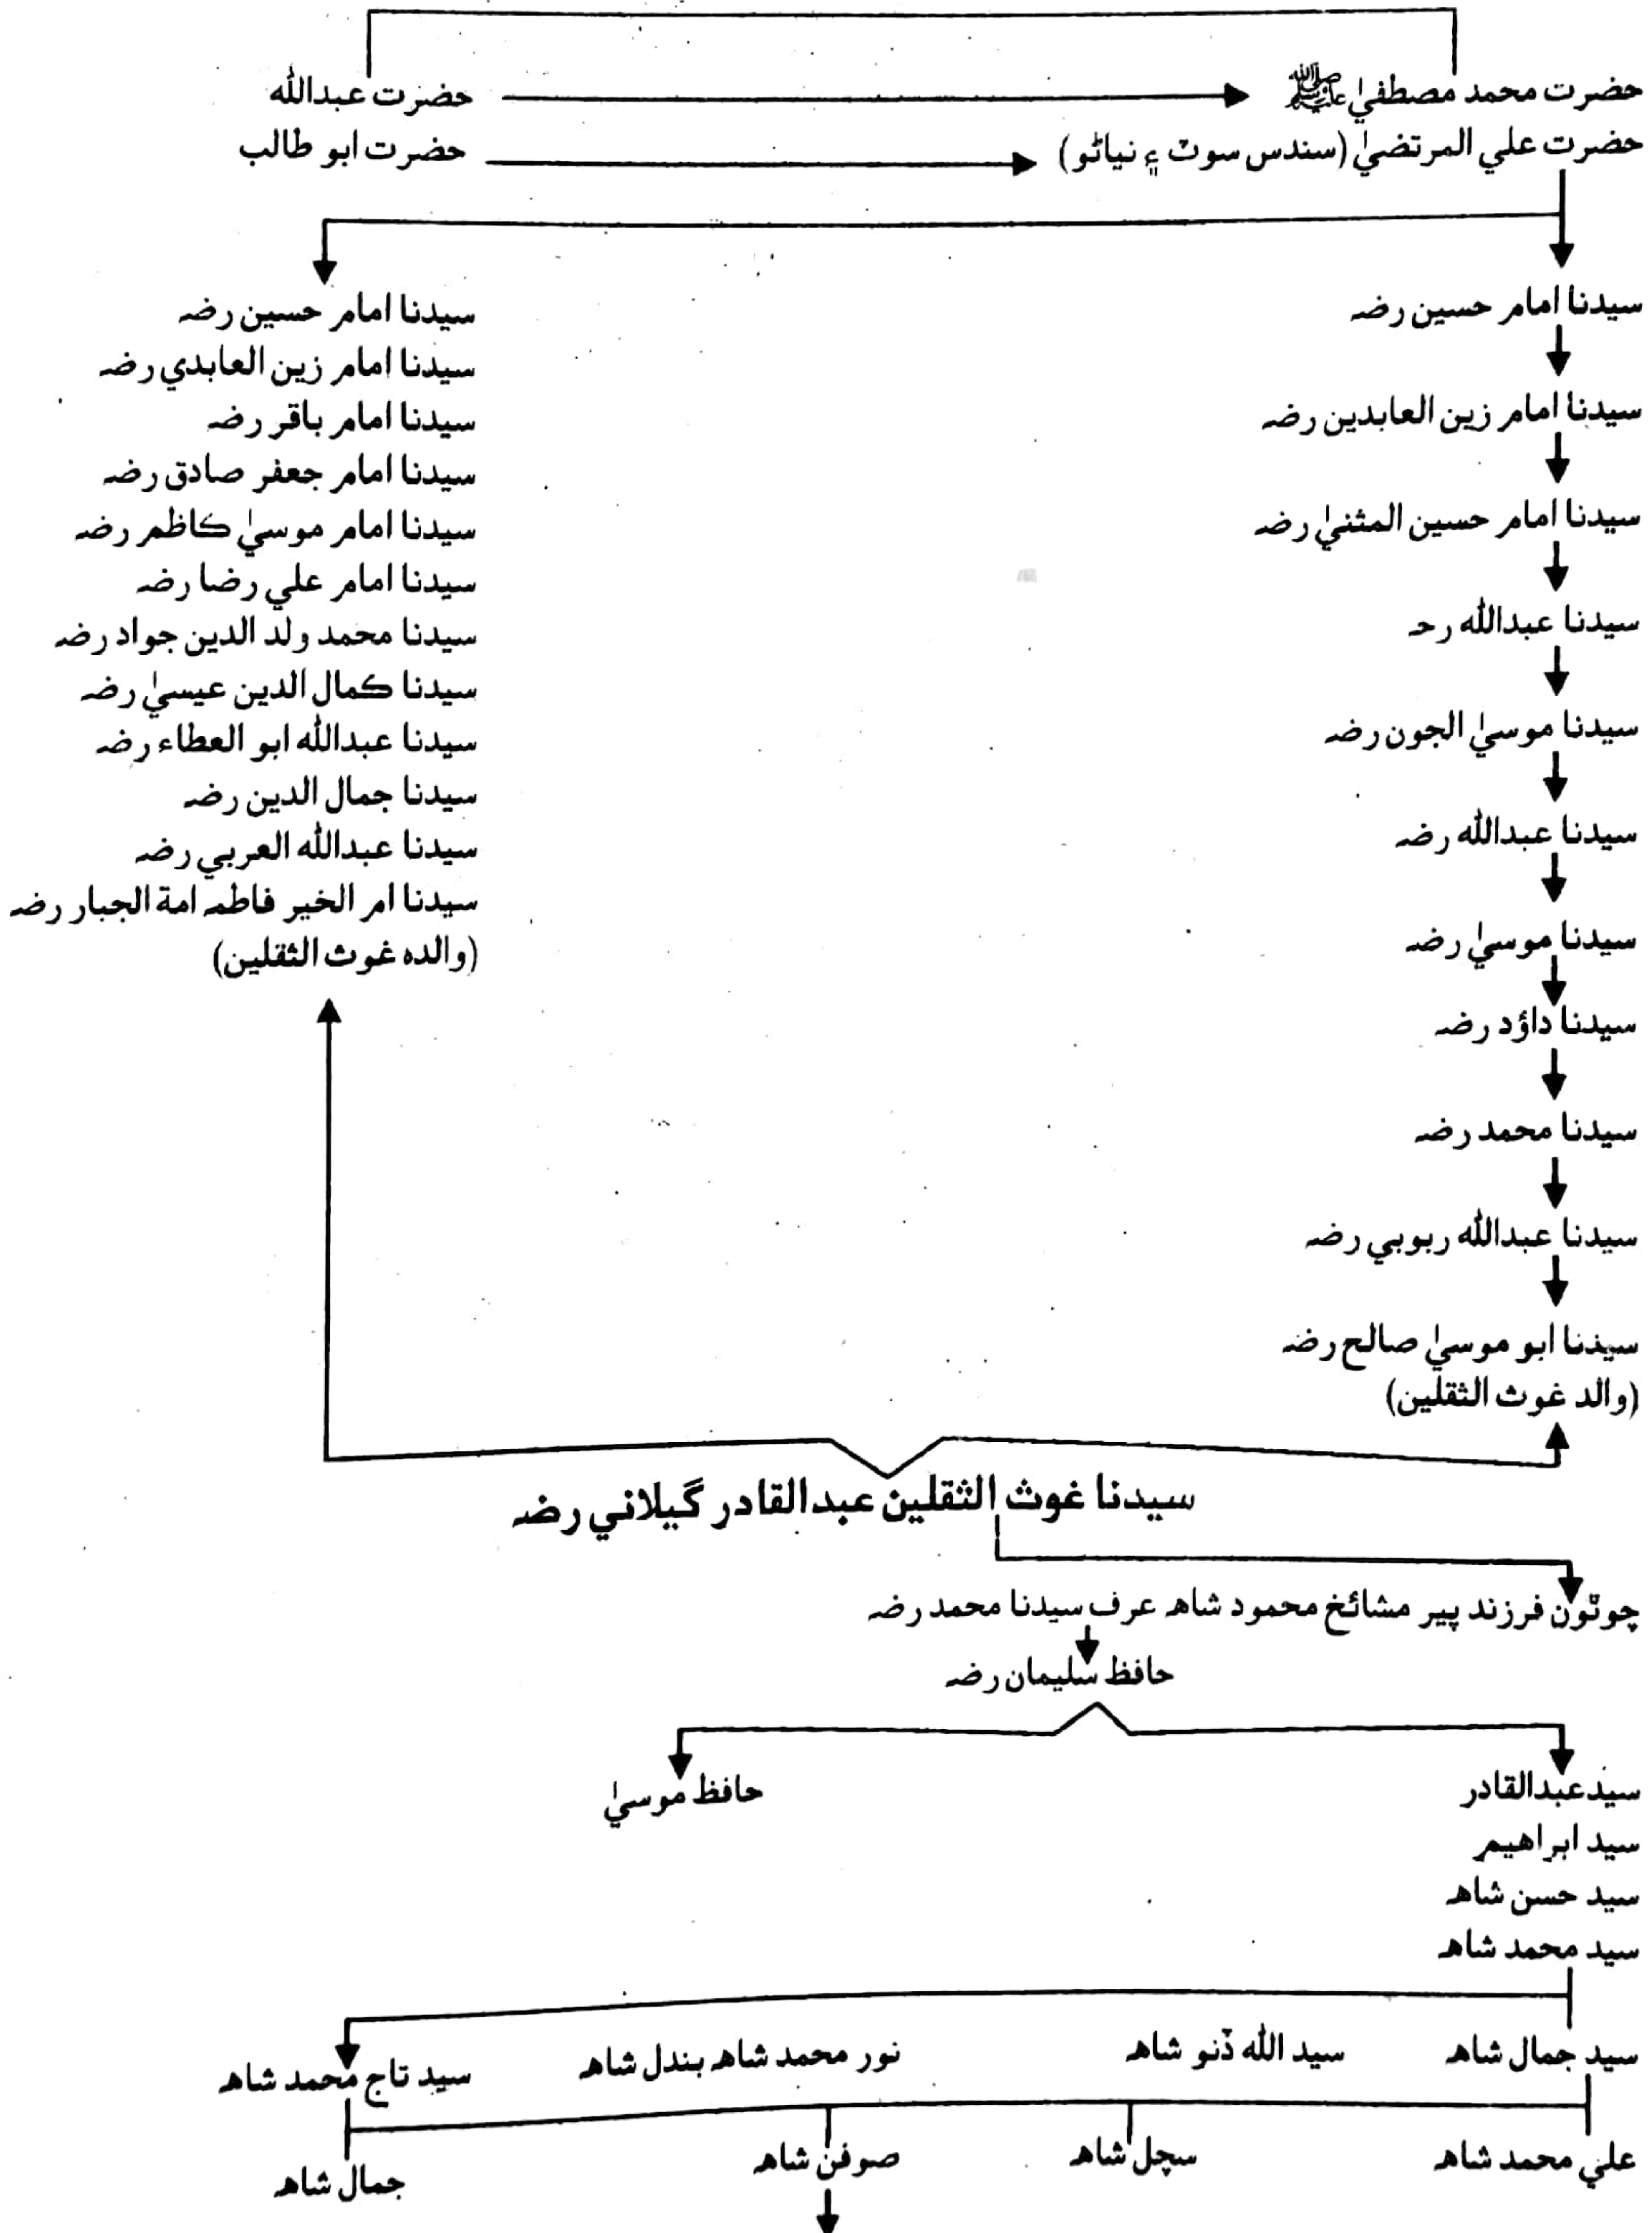 حضرت محمد مصطفيٰ ﷺ
حضرت عبدالله
حضرت علي المرتضيٰ (سندس سوٽ ۽ نياڻو)
حضرت ابو طالب
سيدنا امام حسين رضه
سيدنا امام زين العابدين رضه
سيدنا امام حسين المثنيٰ رضه
سيدنا عبدالله رحه
سيدنا موسيٰ الجون رضه
سيدنا عبدالله رضه
سيدنا موسيٰ رضه
سيدنا داؤد رضه
سيدنا محمد رضه
سيدنا عبدالله ربوبي رضه
سيدنا ابو موسيٰ صالح رضه
(والد غوث الثقلين)
سيدنا امام حسين رضه
سيدنا امام زين العابدي رضه
سيدنا امام باقر رضه
سيدنا امام جعفر صادق رضه
سيدنا امام موسيٰ ڪاظم رضه
سيدنا امام علي رضا رضه
سيدنا محمد ولد الدين جواد رضه
سيدنا ڪمال الدين عيسيٰ رضه
سيدنا عبدالله ابو العطاء رضه
سيدنا جمال الدين رضه
سيدنا عبدالله العربي رضه
سيدنا ام الخير فاطمه امة الجبار رضه
(والده غوث الثقلين)
سيدنا غوث الثقلين عبدالقادر گيلاني رضه
چوٿون فرزند پير مشائخ محمود شاهه عرف سيدنا محمد رضه
حافظ سليمان رضه
سيد عبدالقادر
حافظ موسيٰ
سيد ابراهيم
سيد حسن شاهه
سيد محمد شاهه
سيد جمال شاهه
سيد الله ڏنو شاهه
نور محمد شاهه بندل شاهه
سيد تاج محمد شاهه
علي محمد شاهه
سچل شاهه
صوفن شاهه
جمال شاهه